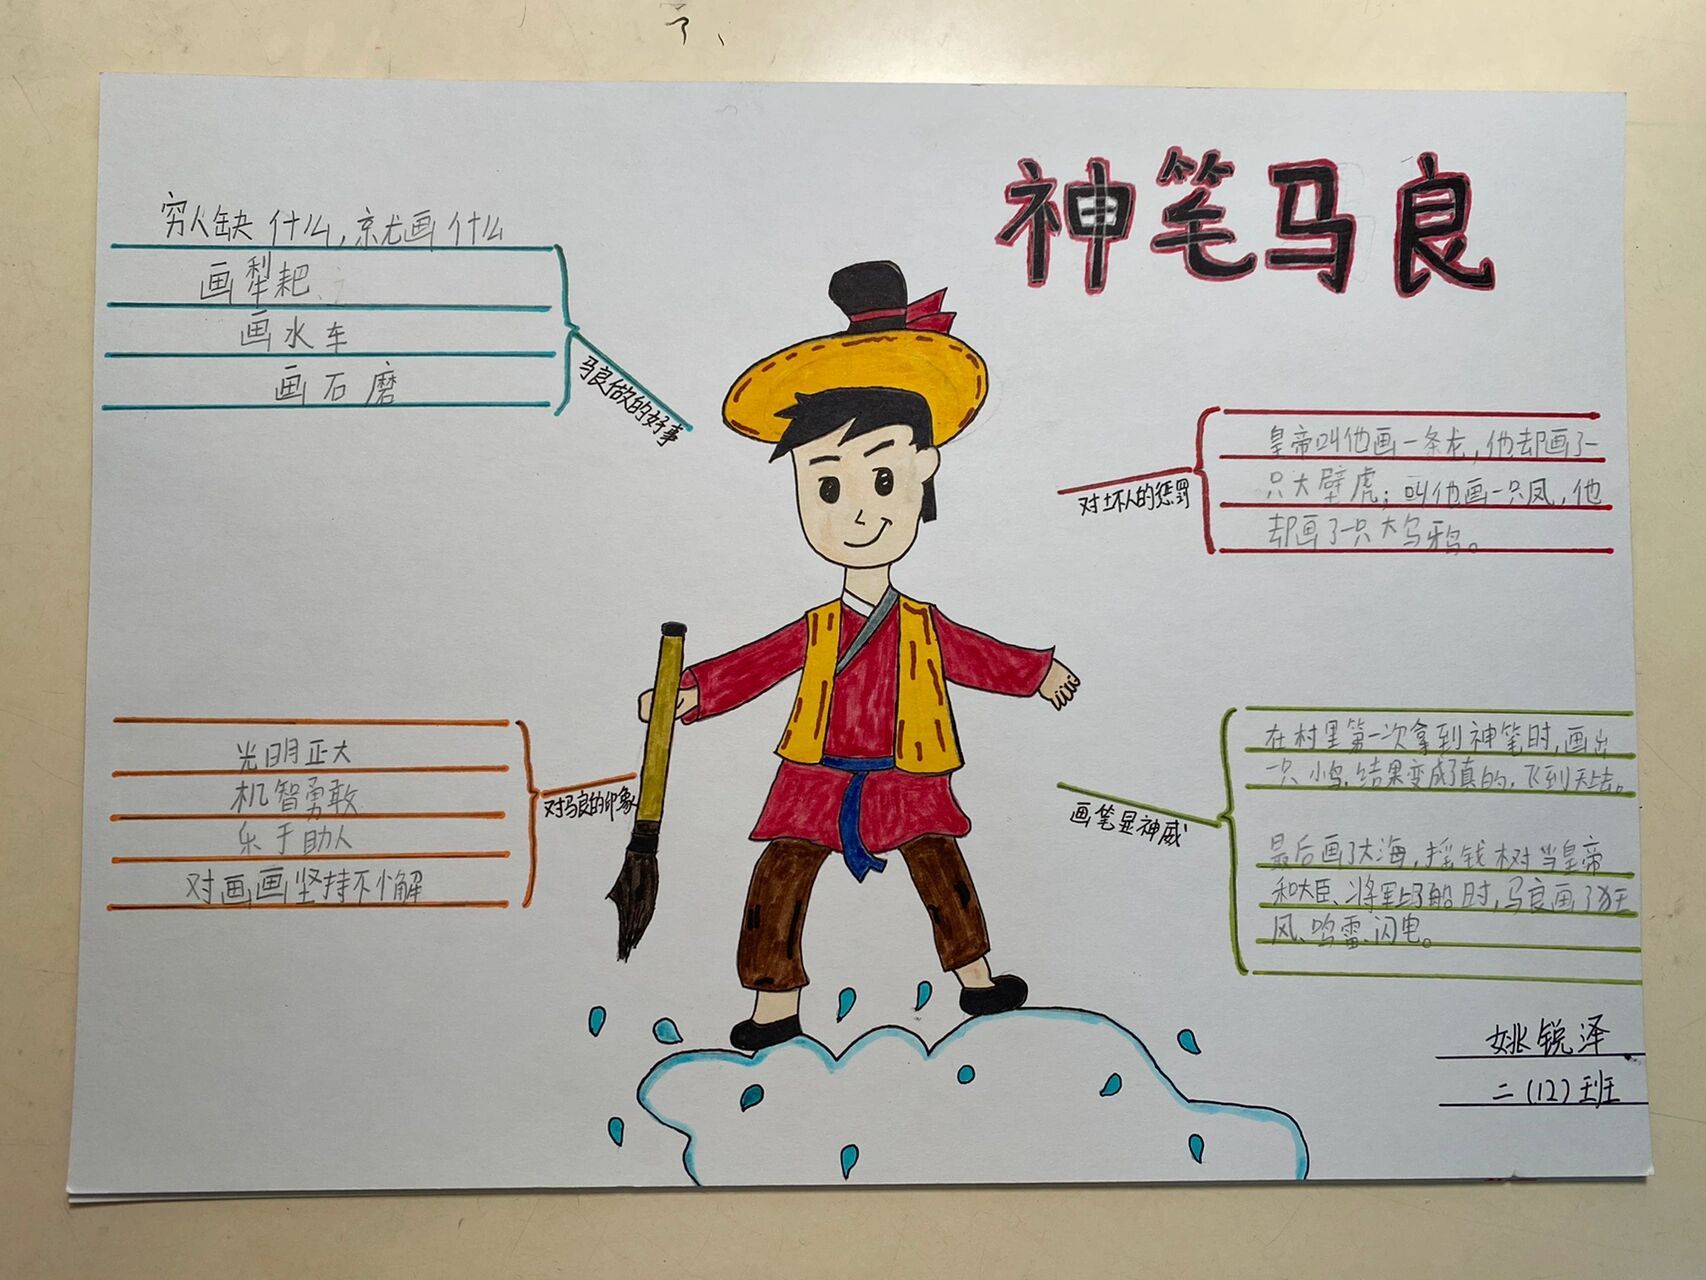 神笔马良
穷人缺什么,就画什么
画犁耙
画水车
画石磨
马良做的好事
对坏人的惩罚
皇帝叫他画一条龙,他却画了一
只大壁虎;叫他画一只凤,他
却画了一只大乌鸦。
光明正大
机智勇敢
乐于助人
对画画坚持不懈
对马良的印象
画笔显神威
在村里第一次拿到神笔时,画出
一只小鸟,结果变成了真的,飞到天上去。
最后画了大海,摇钱树当皇帝
和大臣、将军上了船时,马良画了狂
风、鸣雷、闪电。
姚锐泽
二(12)班